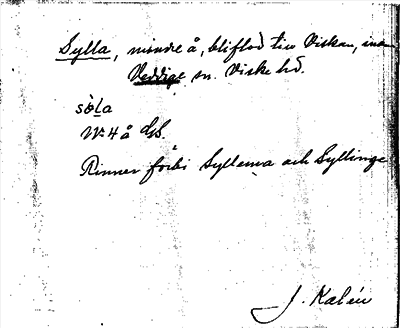 Sylla, mindre å, biflod till Viskan, inom
Veddige sn. Viske hd.
söla
N:4 å GS.
Rinner förbi Syllema och Syllinge
J. Kalén